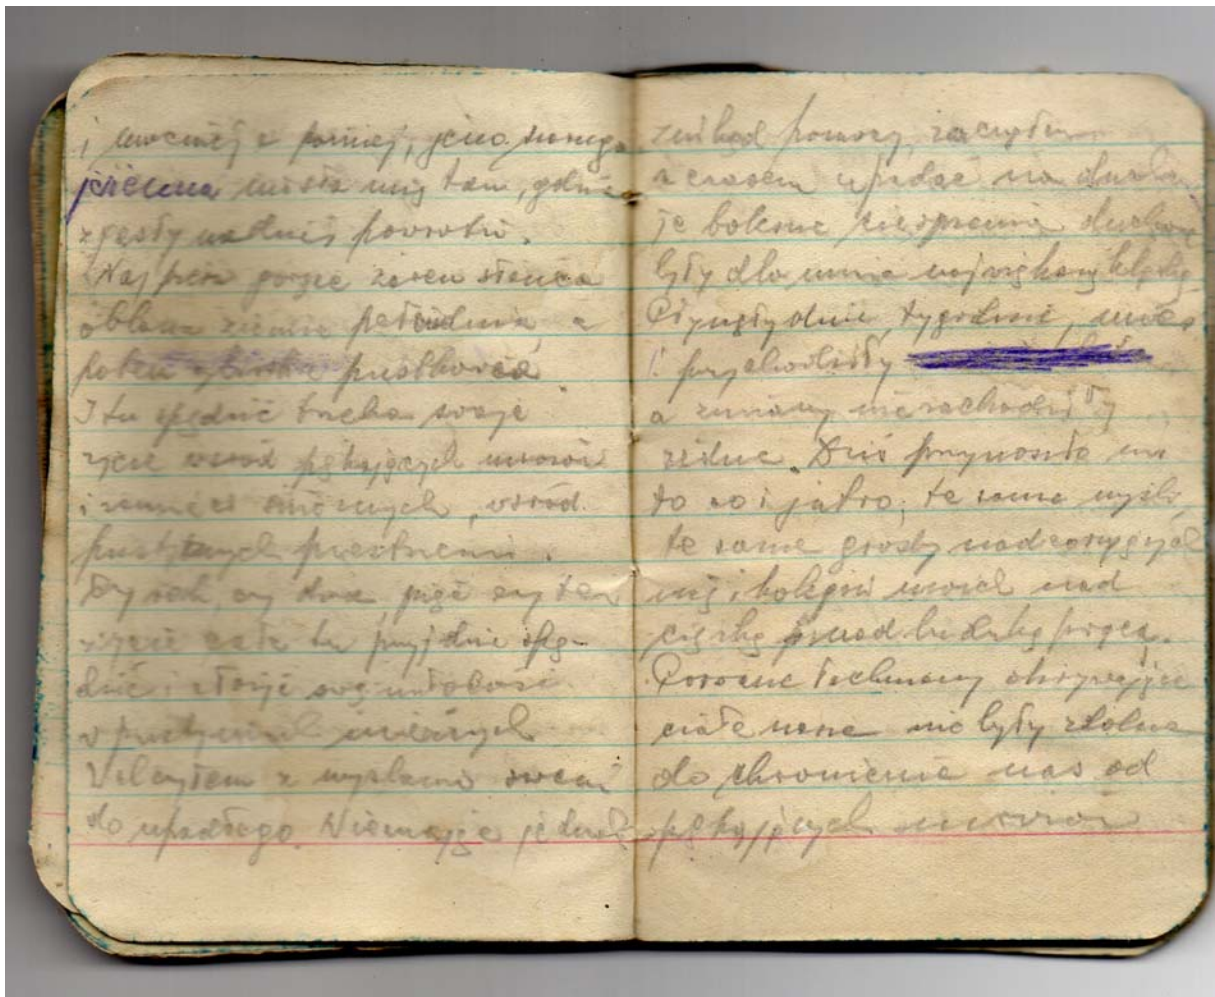 i mocniej a później, jena smuga
jesienna niosła mię tam, gdzie
z gęsty nadziei powrotu.
Najpierw gorące słońca
oblana ziemia południa, a
potem pustkowia
I tu spędzić trzeba swoje
życie wśród pękających mrozów
i zamieci śnieżnych, wśród
pustynnych przestrzeni.
Czy rok, czy dwa, pięć czy też
życie całe tu przyjdzie spę-
dzić i złożyć swą młodość
w pustyniach śnieżnych
Walczyłem z myślami swemi
do upadłego. Niemając jednak
znikąd pomocy, zacząłem
z czasem upadać na duchu
Te bolesne cierpienia duchowe
były dla mnie największą klęską.
Płynęły dnie, tygodnie, mies.
przychodziły
a zmiany nie zachodziły
żadne. Dziś przynosiło mi
to co i jutro; te same myśli,
te same groźby nadzorujących
mię i kolegów moich nad
ciężką ponad ludzką pracą.
Porwane łachmany okrywające
ciała nasze nie były zdolne
do chronienia nas od
pękających mrozów